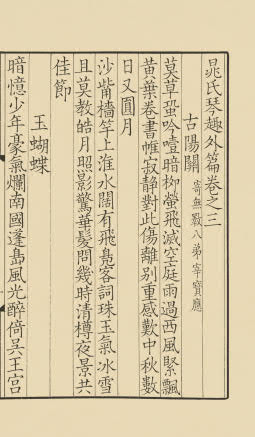 晁氏琴趣外篇卷之三
古陽關 寄無斁八弟宰寶應
莫草蛩吟噎暗柳螢飛滅空庭雨過西風緊飄
黃葉卷書帷寂靜對此傷離別重感歎中秋數
日又圓月
沙觜檣竿上淮水闊有飛鳧客詞珠玉氣冰雪
且莫教皓月照影驚華髮問幾時清樽夜景共
佳節
玉蝴蝶
暗憶少年豪氣爛南國蓬島風光醉倚吴王宮